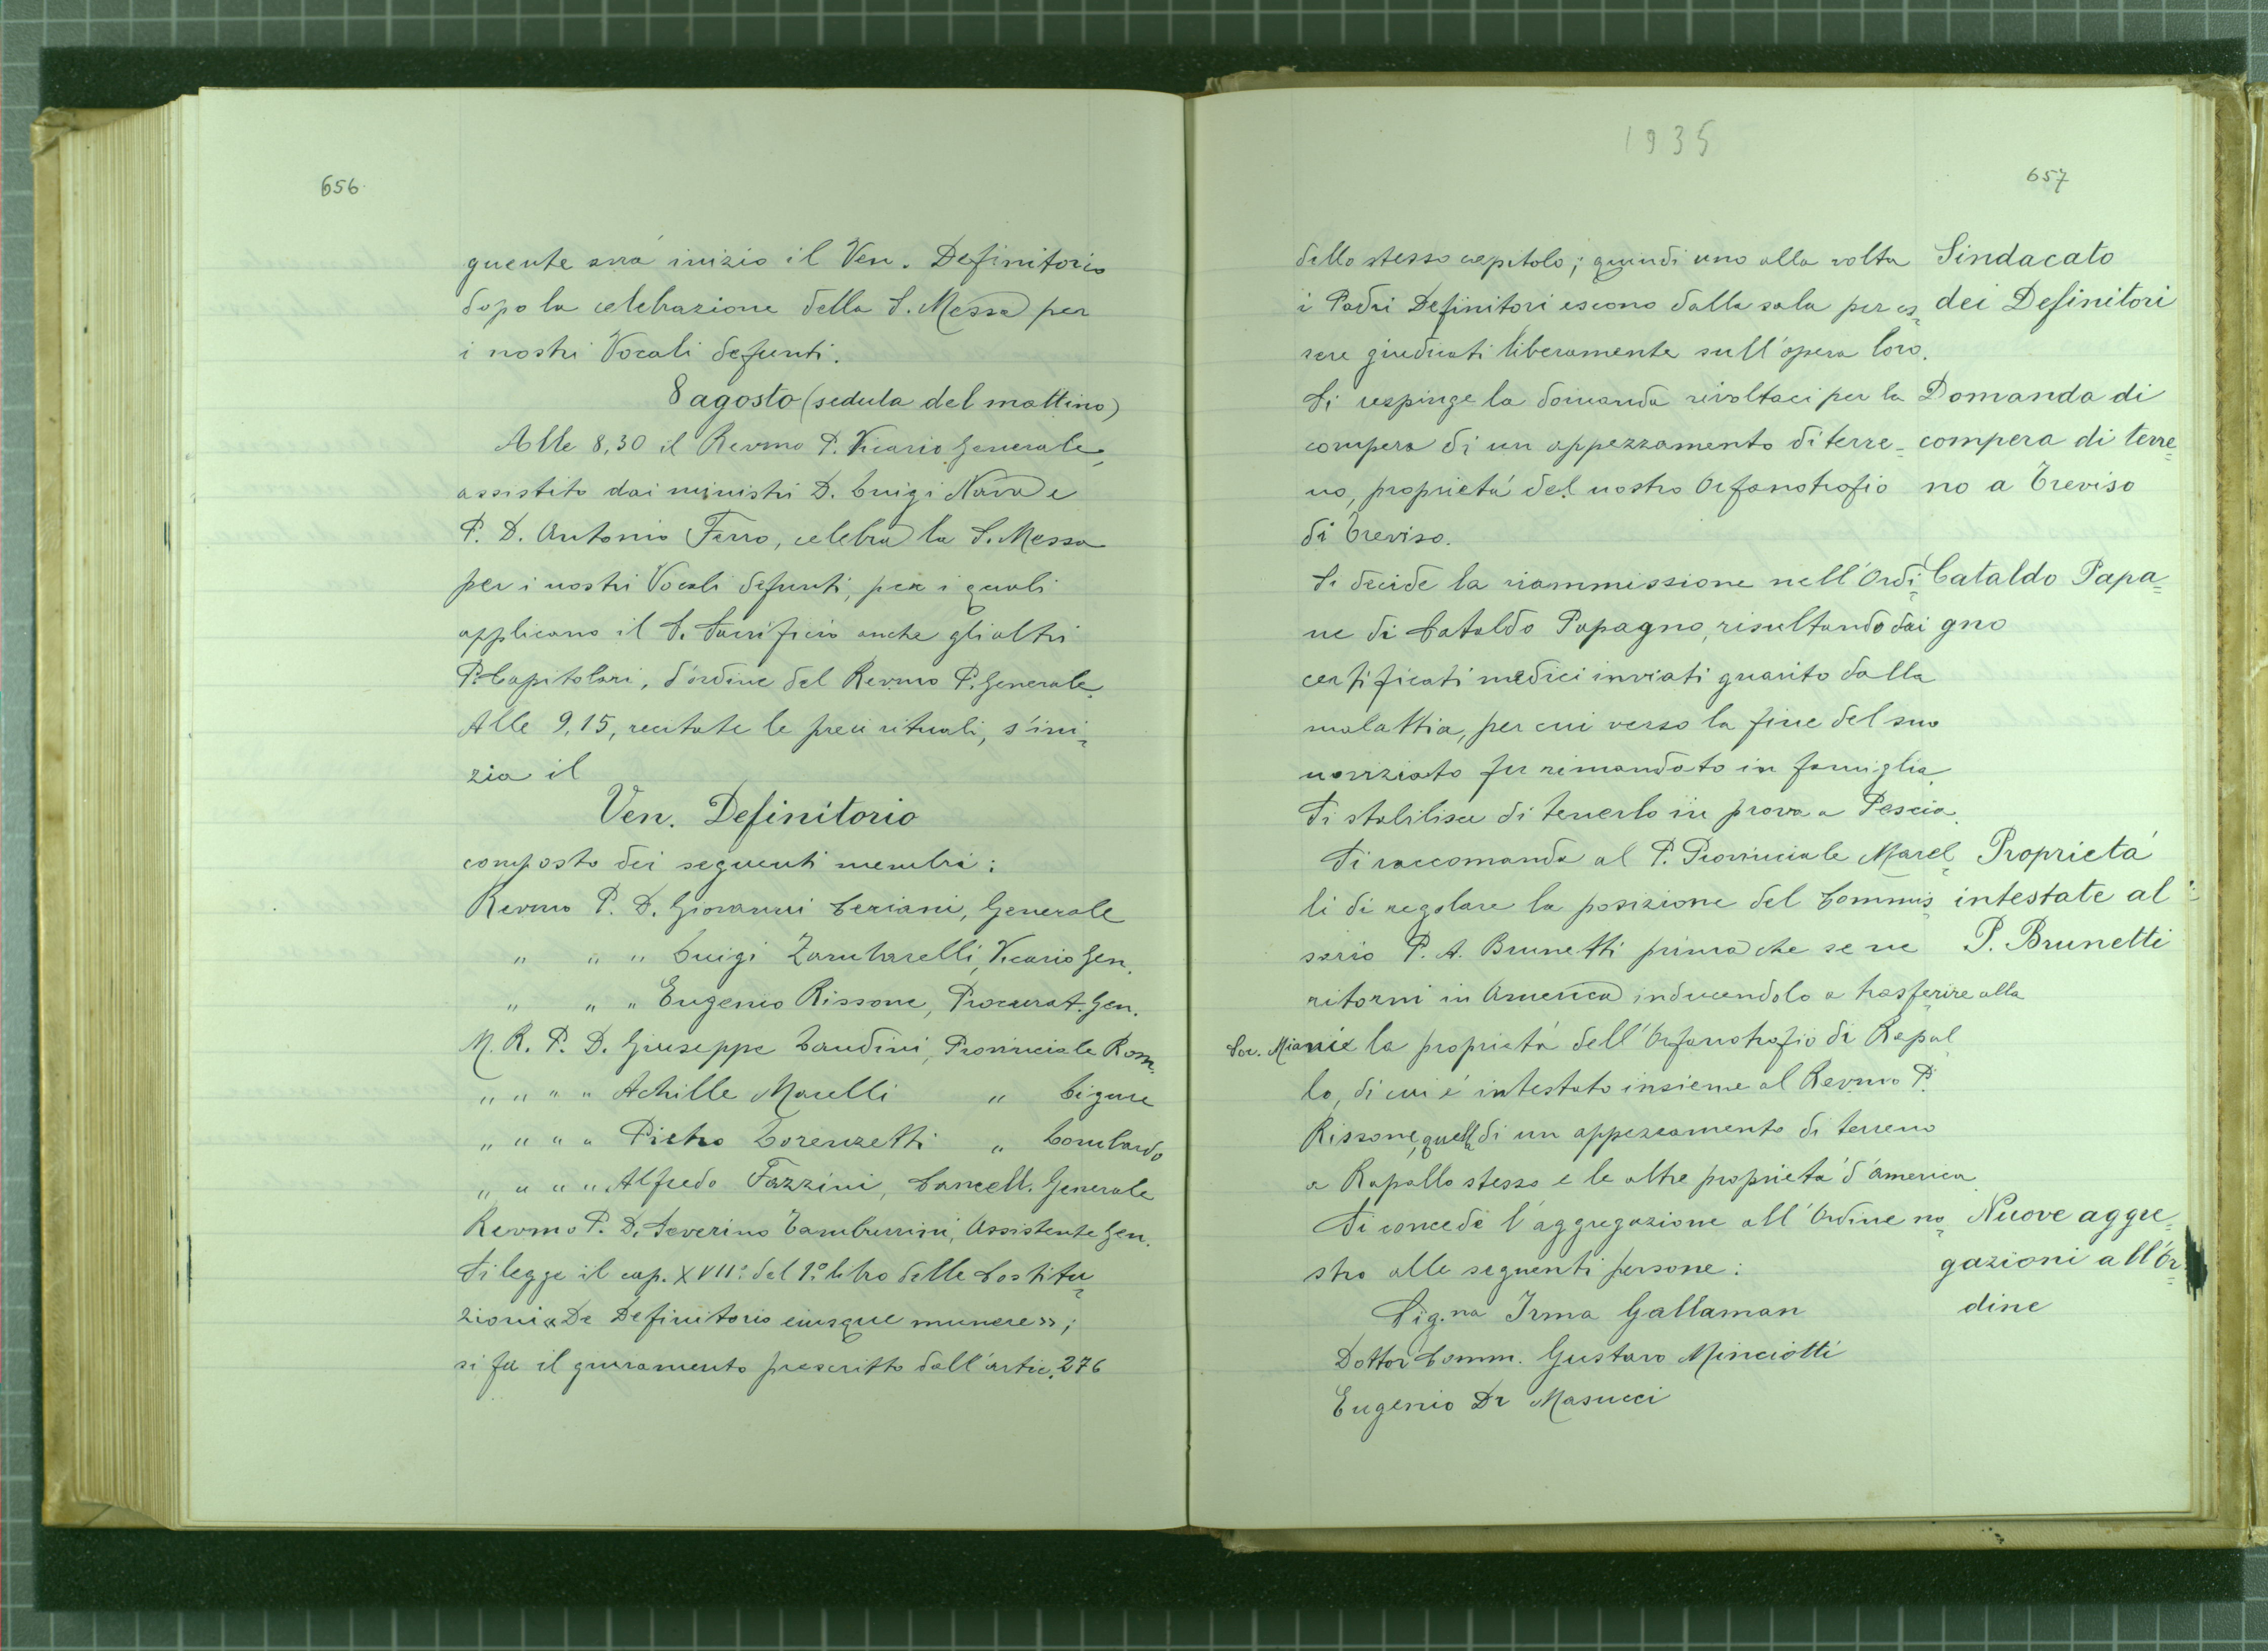 656
guente avrà inizio il Ven. Definitorio
dopo la celebrazione della S. Messa per
i nostri Vocali defunti.
8 agosto (seduta del mattino)
Alle 8,30 il Revmo P. Vicario Generale,
assistito dai ministri D. Luigi Nava e
P. D. Antonio Ferro, celebra la S. Messa
per i nostri Vocali defunti, per i quali
applicano il S. Sacrificio anche gli altri
P. Capitolari, d'ordine del Revmo P. Generale.
Alle 9,15, recitate le preci rituali, s'ini=
zia il
Ven. Definitorio
composto dei seguenti membri:
Revmo P. D. Giovanni Ceriani, Generale
" " " Luigi Zambarelli, Vicario Gen.
" " " Eugenio Rissone, Procurat. Gen.
M. R. P. D. Giuseppe Landini, Provinciale Rom=
" " " " Achille Marelli " Ligure
" " " " Pietro Lorenzetti " Lombardo
" " " " Alfredo Fazzini, Cancell. Generale
Revmo P. D. Severino Tamburrini, Assistente Gen.
Si legge il cap. XVII° del 1° libro delle Costitu=
zioni «De Definitorio eiusque munere»;
si fa il giuramento prescritto dall'artic. 276
1935
657
dello stesso capitolo; quindi uno alla volta
i Padri Definitori escono dalla sala per es=
sere giudicati liberamente sull'opera loro.
Sindacato
dei Definitori
Si respinge la domanda rivoltaci per la
compera di un appezzamento di terre=
no, proprietá del nostro Orfanotrofio
di Treviso.
Domanda di
compera di terre=
no a Treviso
Si decide la riammissione nell'Ordi=
ne di Cataldo Papagno, risultando dai
certificati medici inviati guarito dalla
malattia, per cui verso la fine del suo
noviziato fu rimandato in famiglia.
Si stabilisce di tenerlo in prova a Pescia.
Cataldo Papa=
gno
Si raccomanda al P. Provinciale Marel=
li di regolare la posizione del Commis=
sario P. A. Brunetti prima che se ne
ritorni in America inducendolo a trasferire alla
Soc. Miani la proprietá dell'Orfanotrofio di Rapal
lo, di cui é intestato insieme al Revmo P.
Rissone, quella di un appezzamento di terreno
a Rapallo stesso e le altre proprietá d'America.
Proprietá
intestate al
P. Brunetti
Si concede l'aggregazione all'Ordine no=
stro alle seguenti persone:
Sig.na Irma Gallaman
Dottor Comm. Gustavo Minciotti
Eugenio De Masucci
Nuove aggre=
gazioni all'Or=
dine